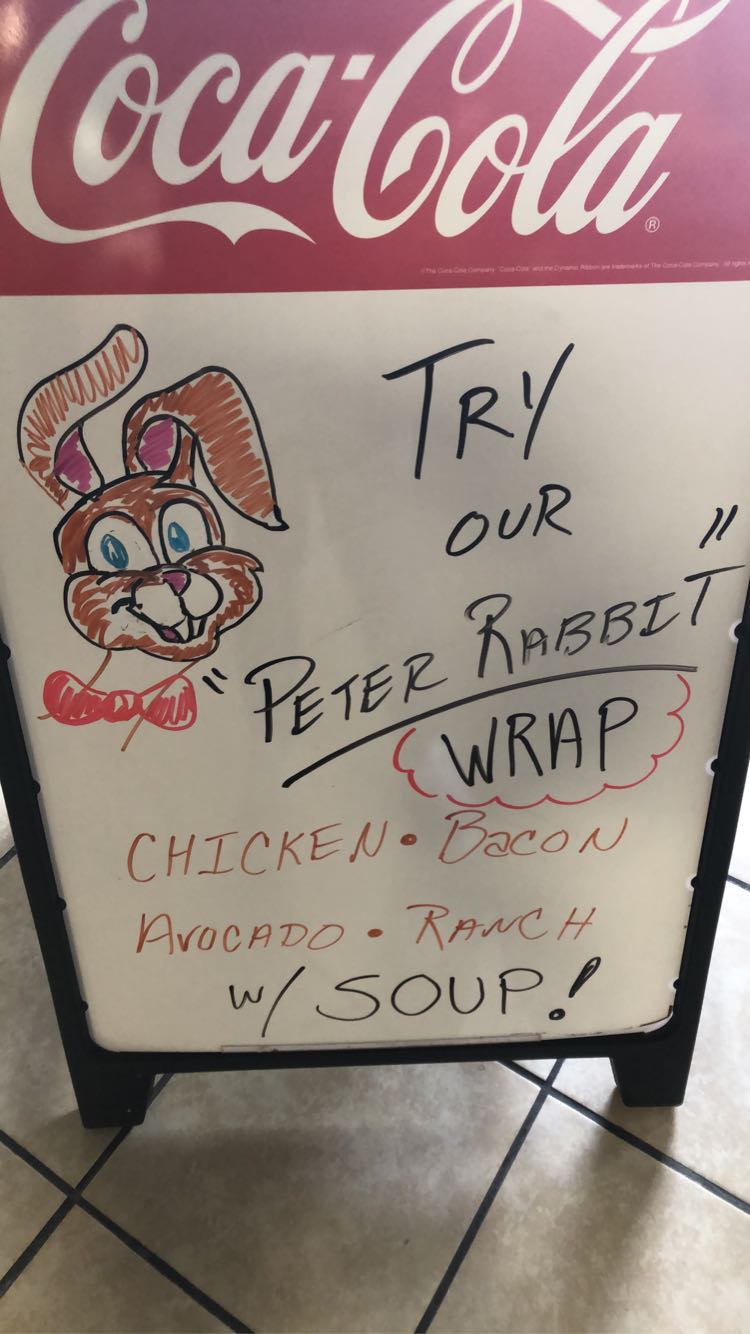 Coca-Cola®
©The Coca-Cola Company "Coca-Cola" and the Dynamic Ribbon are trademarks of The Coca-Cola Company. All rights
TRY
OUR
"PETER RABBIT"
WRAP
CHICKEN • BACON
AVOCADO • RANCH
W/ SOUP!